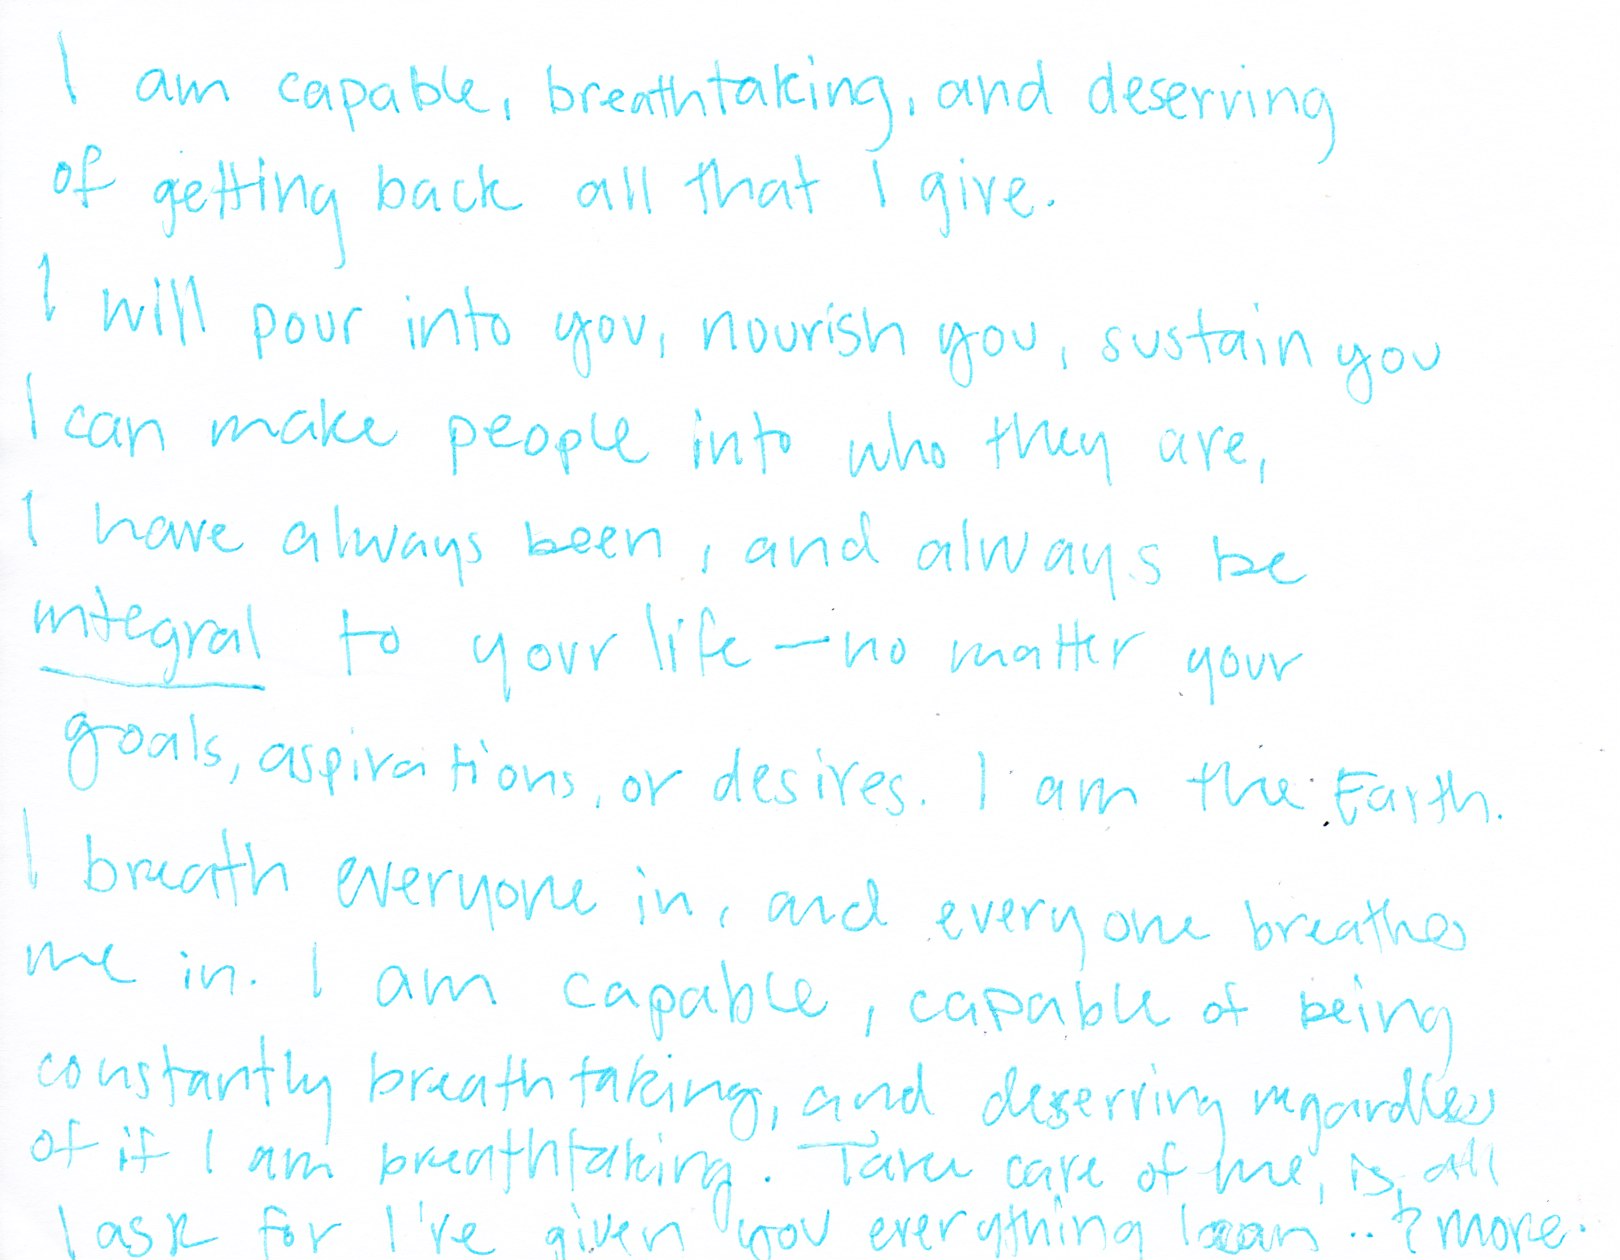 I am capable, breathtaking, and deserving
of getting back all that I give.
I will pour into you, nourish you, sustain you
I can make people into who they are,
I have always been, and always be
integral to your life — no matter your
goals, aspirations, or desires. I am the Earth.
I breath everyone in, and everyone breathes
me in. I am capable, capable of being
constantly breathtaking, and deserving regardless
of if I am breathtaking. Take care of me, is all
I ask for I've given you everything I can .. & more.